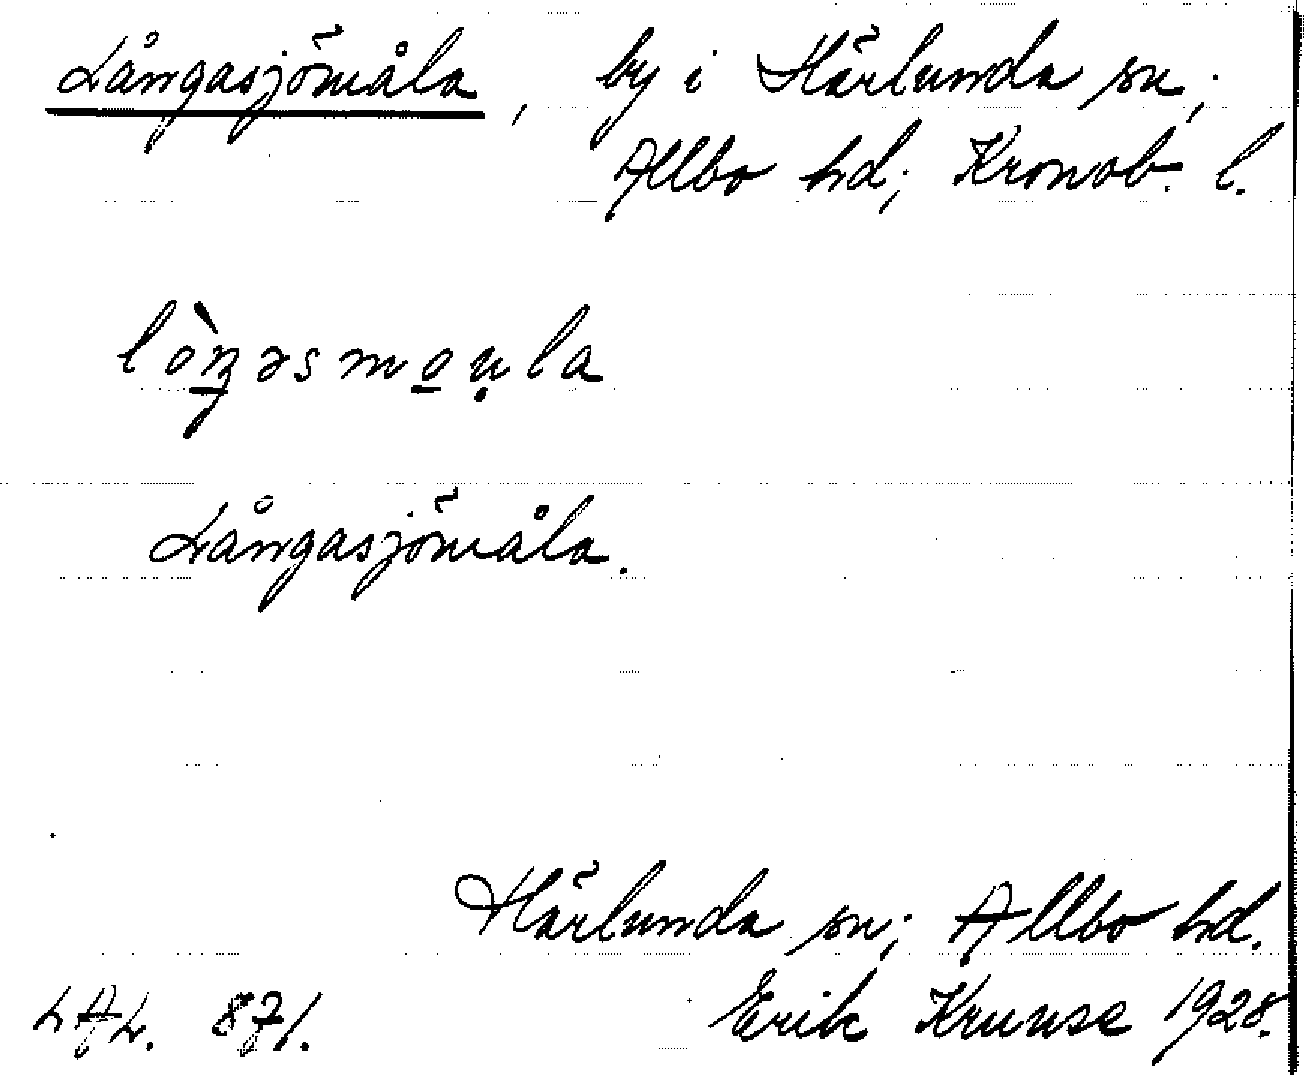 Långasjömåla, by i Härlunda sn;
Allbo hd; Kronob. l.
lòŋəsmo̲ụla
Långasjömåla.
Härlunda sn; Allbo hd.
LAL. 871. Erik Kruuse 1928.